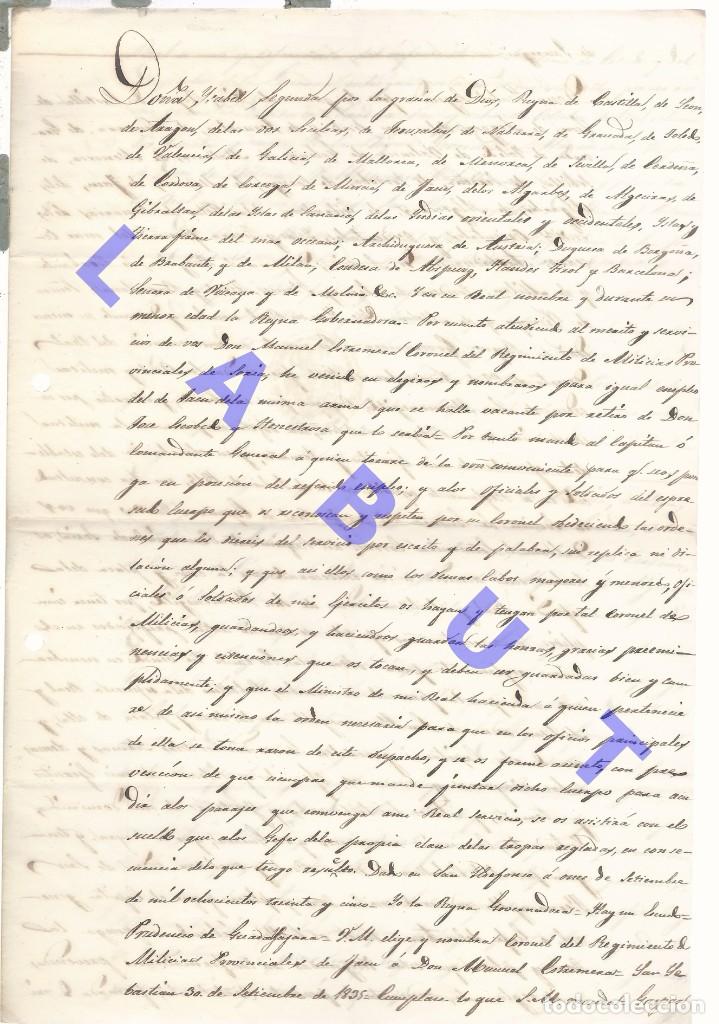 Doña Ysabel Segunda por la gracia de Dios, Reyna de Castilla, de Leon,
de Aragon, delas dos Sicilias, de Jerusalen, de Nabarra, de Granada, de Toledo
de Valencia, de Galicia, de Mallorca, de Menorca, de Sevilla, de Cerdeña,
de Cordova, de Corcega, de Murcia, de Jaen, delos Algarbes, de Algeciras, de
Gibraltar, delas Yslas de Canaria, delas Yndias orientales y occidentales, Yslas y
tierra firme del mar occeano, Archiduquesa de Austria; Duquesa de Borgoña,
de Brabante, y de Milan, Condesa de Abspurg, Flandes Tirol y Barcelona;
Señora de Vizcaya y de Molina &c. Y en su Real nombre y durante su
menor edad la Reyna Gobernadora. Por cuanto atendiendo al merito y servi-
cios de vos Don Manuel Estremera Coronel del Regimiento de Milicias Pro-
vinciales de Soria, he venido en elegiros y nombraros para igual empleo
del de Jaen dela misma arma que se halla vacante por retiro de Don
Jose Escobedo y que lo servia. Por tanto mando al Capitan ó
Comandante General a quien tocare dé la orn combeniente para q. se os pon
ga en posesion del referido empleo; y alos oficiales y soldados del espre-
sado Cuerpo que os reconozcan y respeten por su Coronel obedeciendo las orde-
nes que les diereis del servicio por escrito y de palabra, sin replica ni di-
lacion alguna; y que asi ellos como los demas Cabos mayores y menores, ofi-
ciales ó Soldados de mis Ejercitos os hayan, y tengan por tal Coronel de
Milicias, guardandoos, y haciendoos guardar las honras, gracias preemi-
nencias y esenciones que os tocan, y deben ser guardadas bien y cum
plidamente; y que el Ministro de mi Real hacienda a quien pertenecie
re dé asi mismo la orden necesaria para que en los oficios principales
de ella se tome razon de este despacho, y se os forme asiento, con pre-
vencion de que siempre que mande juntar dicho Cuerpo para acu
dir alos parajes que convenga ami Real servicio, se os asistirá con el
sueldo que alos Gefes dela propia clase delas tropas regladas, en conse-
cuencia delo que tengo resuelto. Dado en San Yldefonso á once de Setiembre
de mil ochocientos treinta y cinco. Yo la Reyna Governadora. Hay un
Prudencio de Guadalfajara. V.M. elige y nombra Coronel del Regimiento de
Milicias Provinciales de Jaen á Don Manuel Estremera. San Se
bastian 30. de Setiembre de 1835. Cumplase lo que S.M. manda.
L
A
B
U
T
todocoleccion